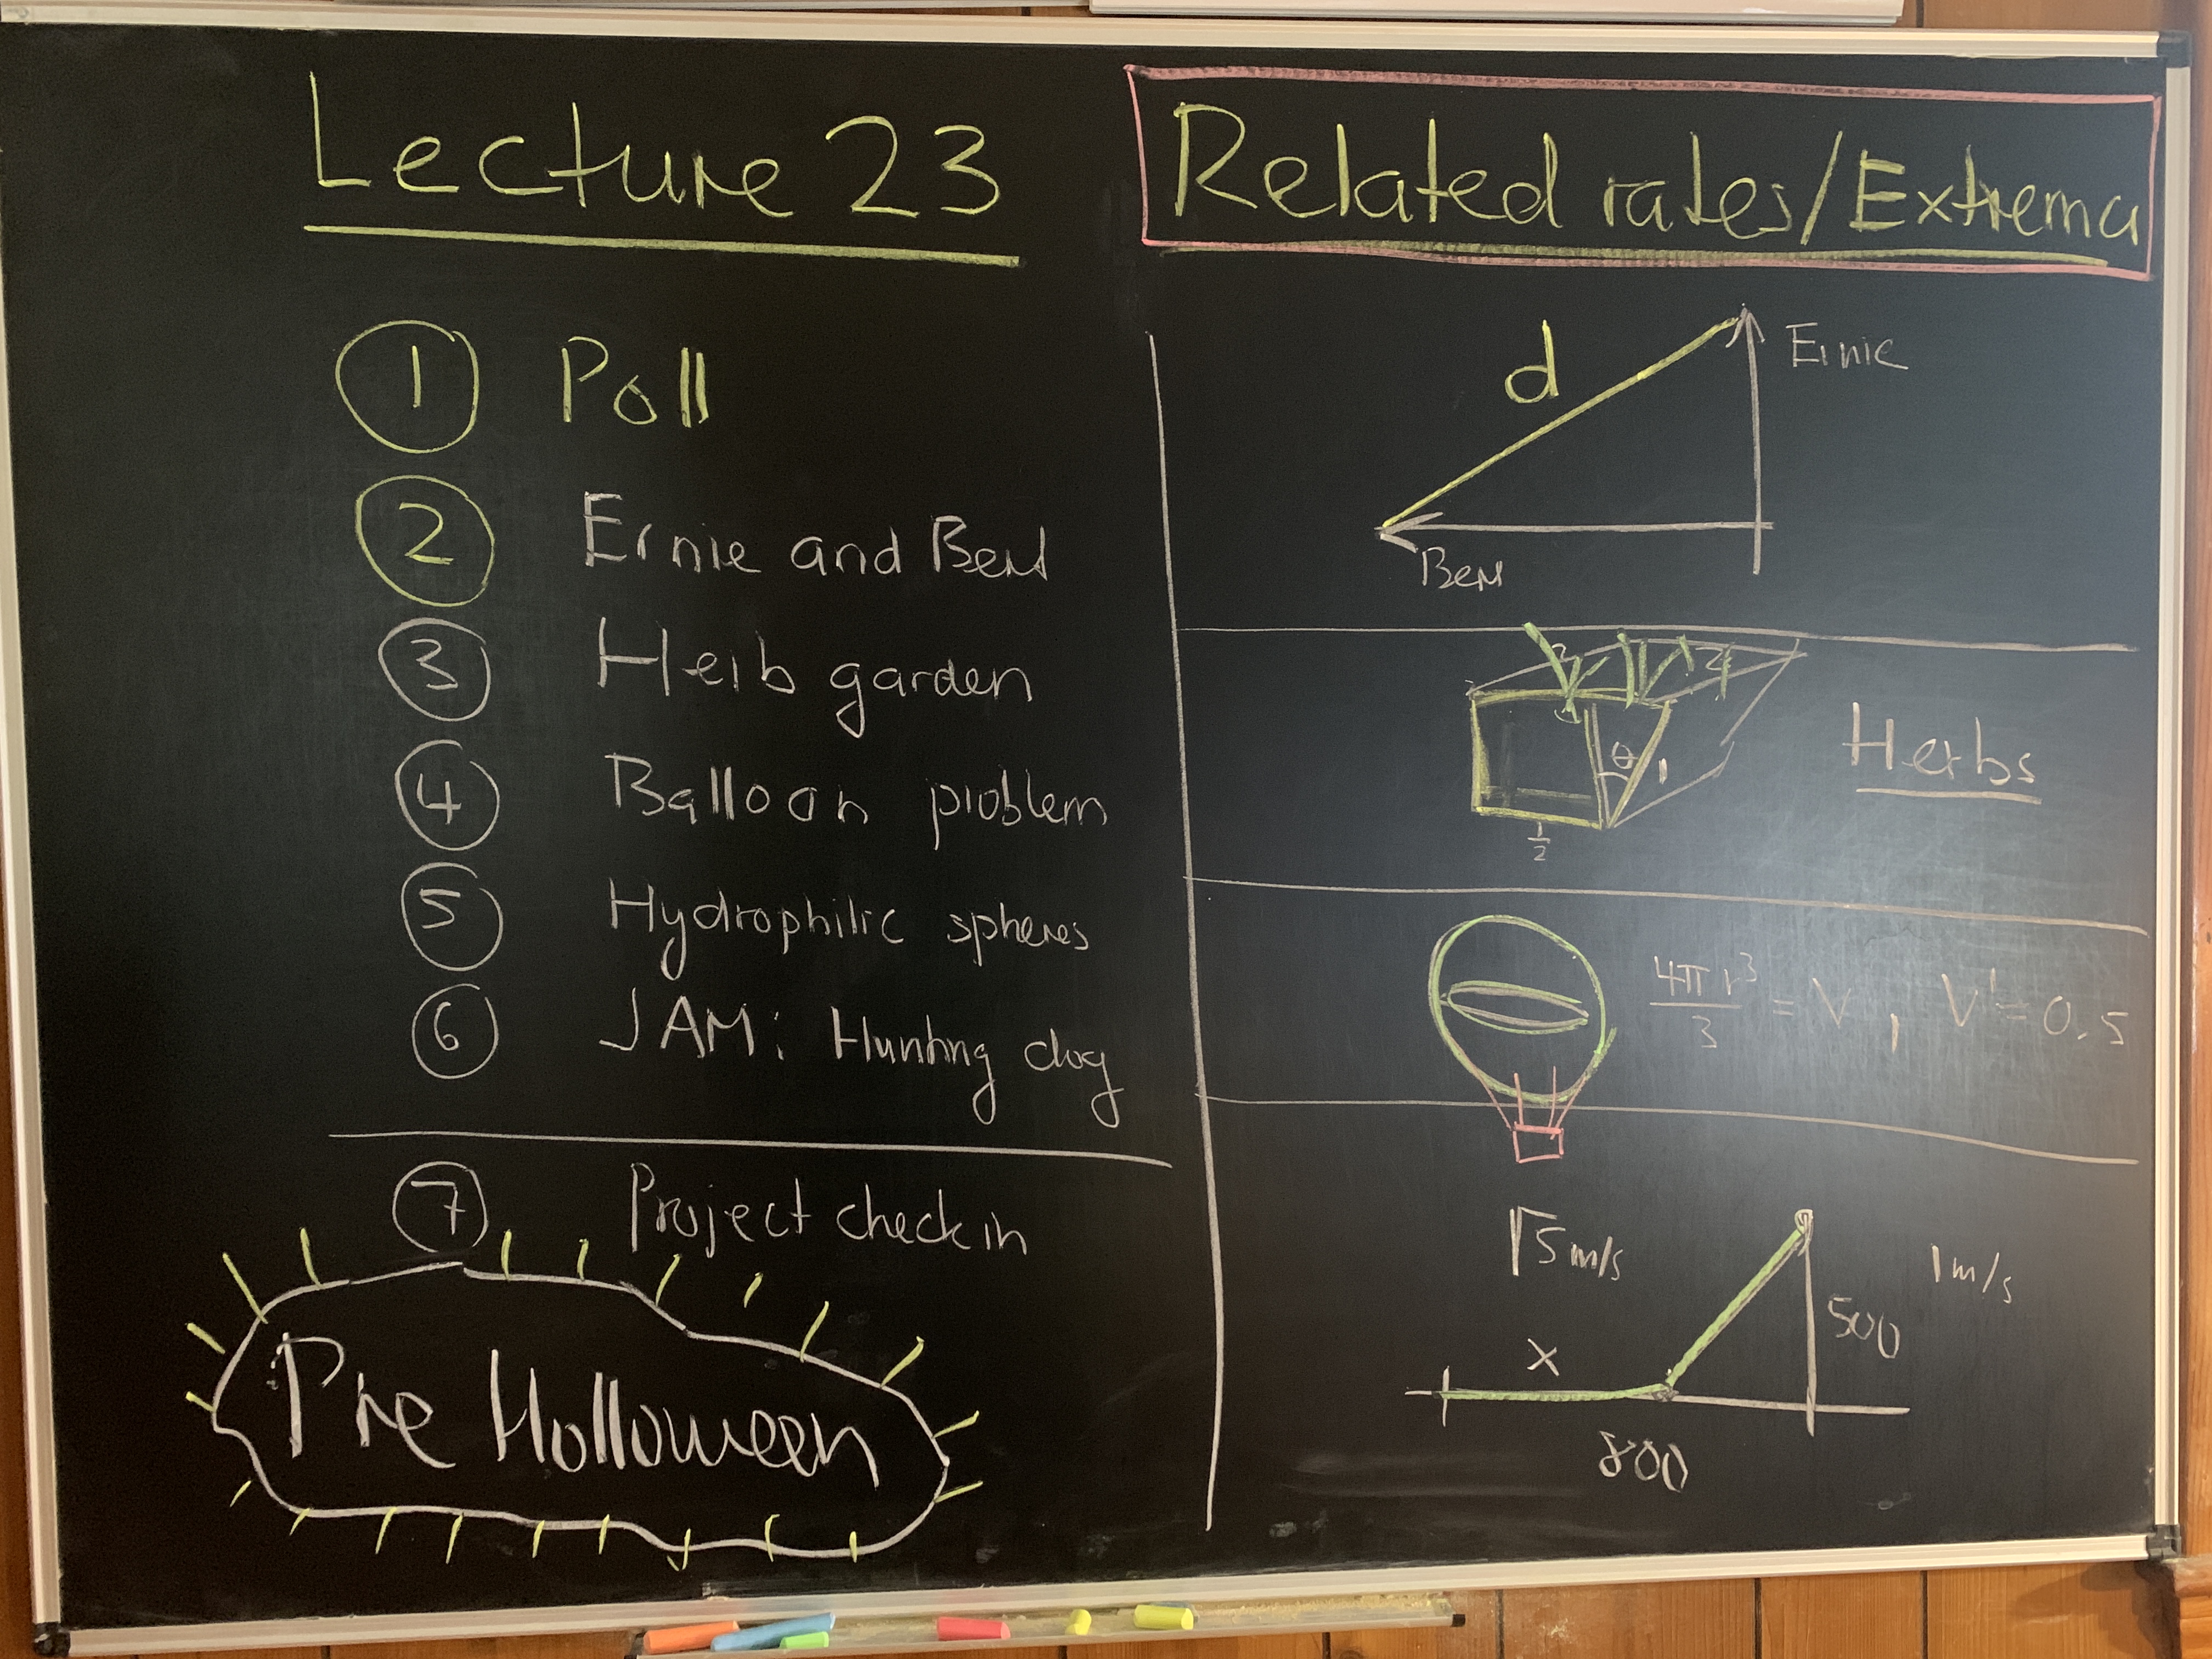 Lecture 23
1 Poll
2 Ernie and Bert
3 Herb garden
4 Balloon problem
5 Hydrophilic spheres
6 JAM: Hunting dog
7 Project check in
Pre Holloween
Related rates/Extrema
d
Ernie
Bert
θ
1
1/2
Herbs
4πr³/3 = V, V' = 0.5
√5 m/s
1 m/s
x
500
800